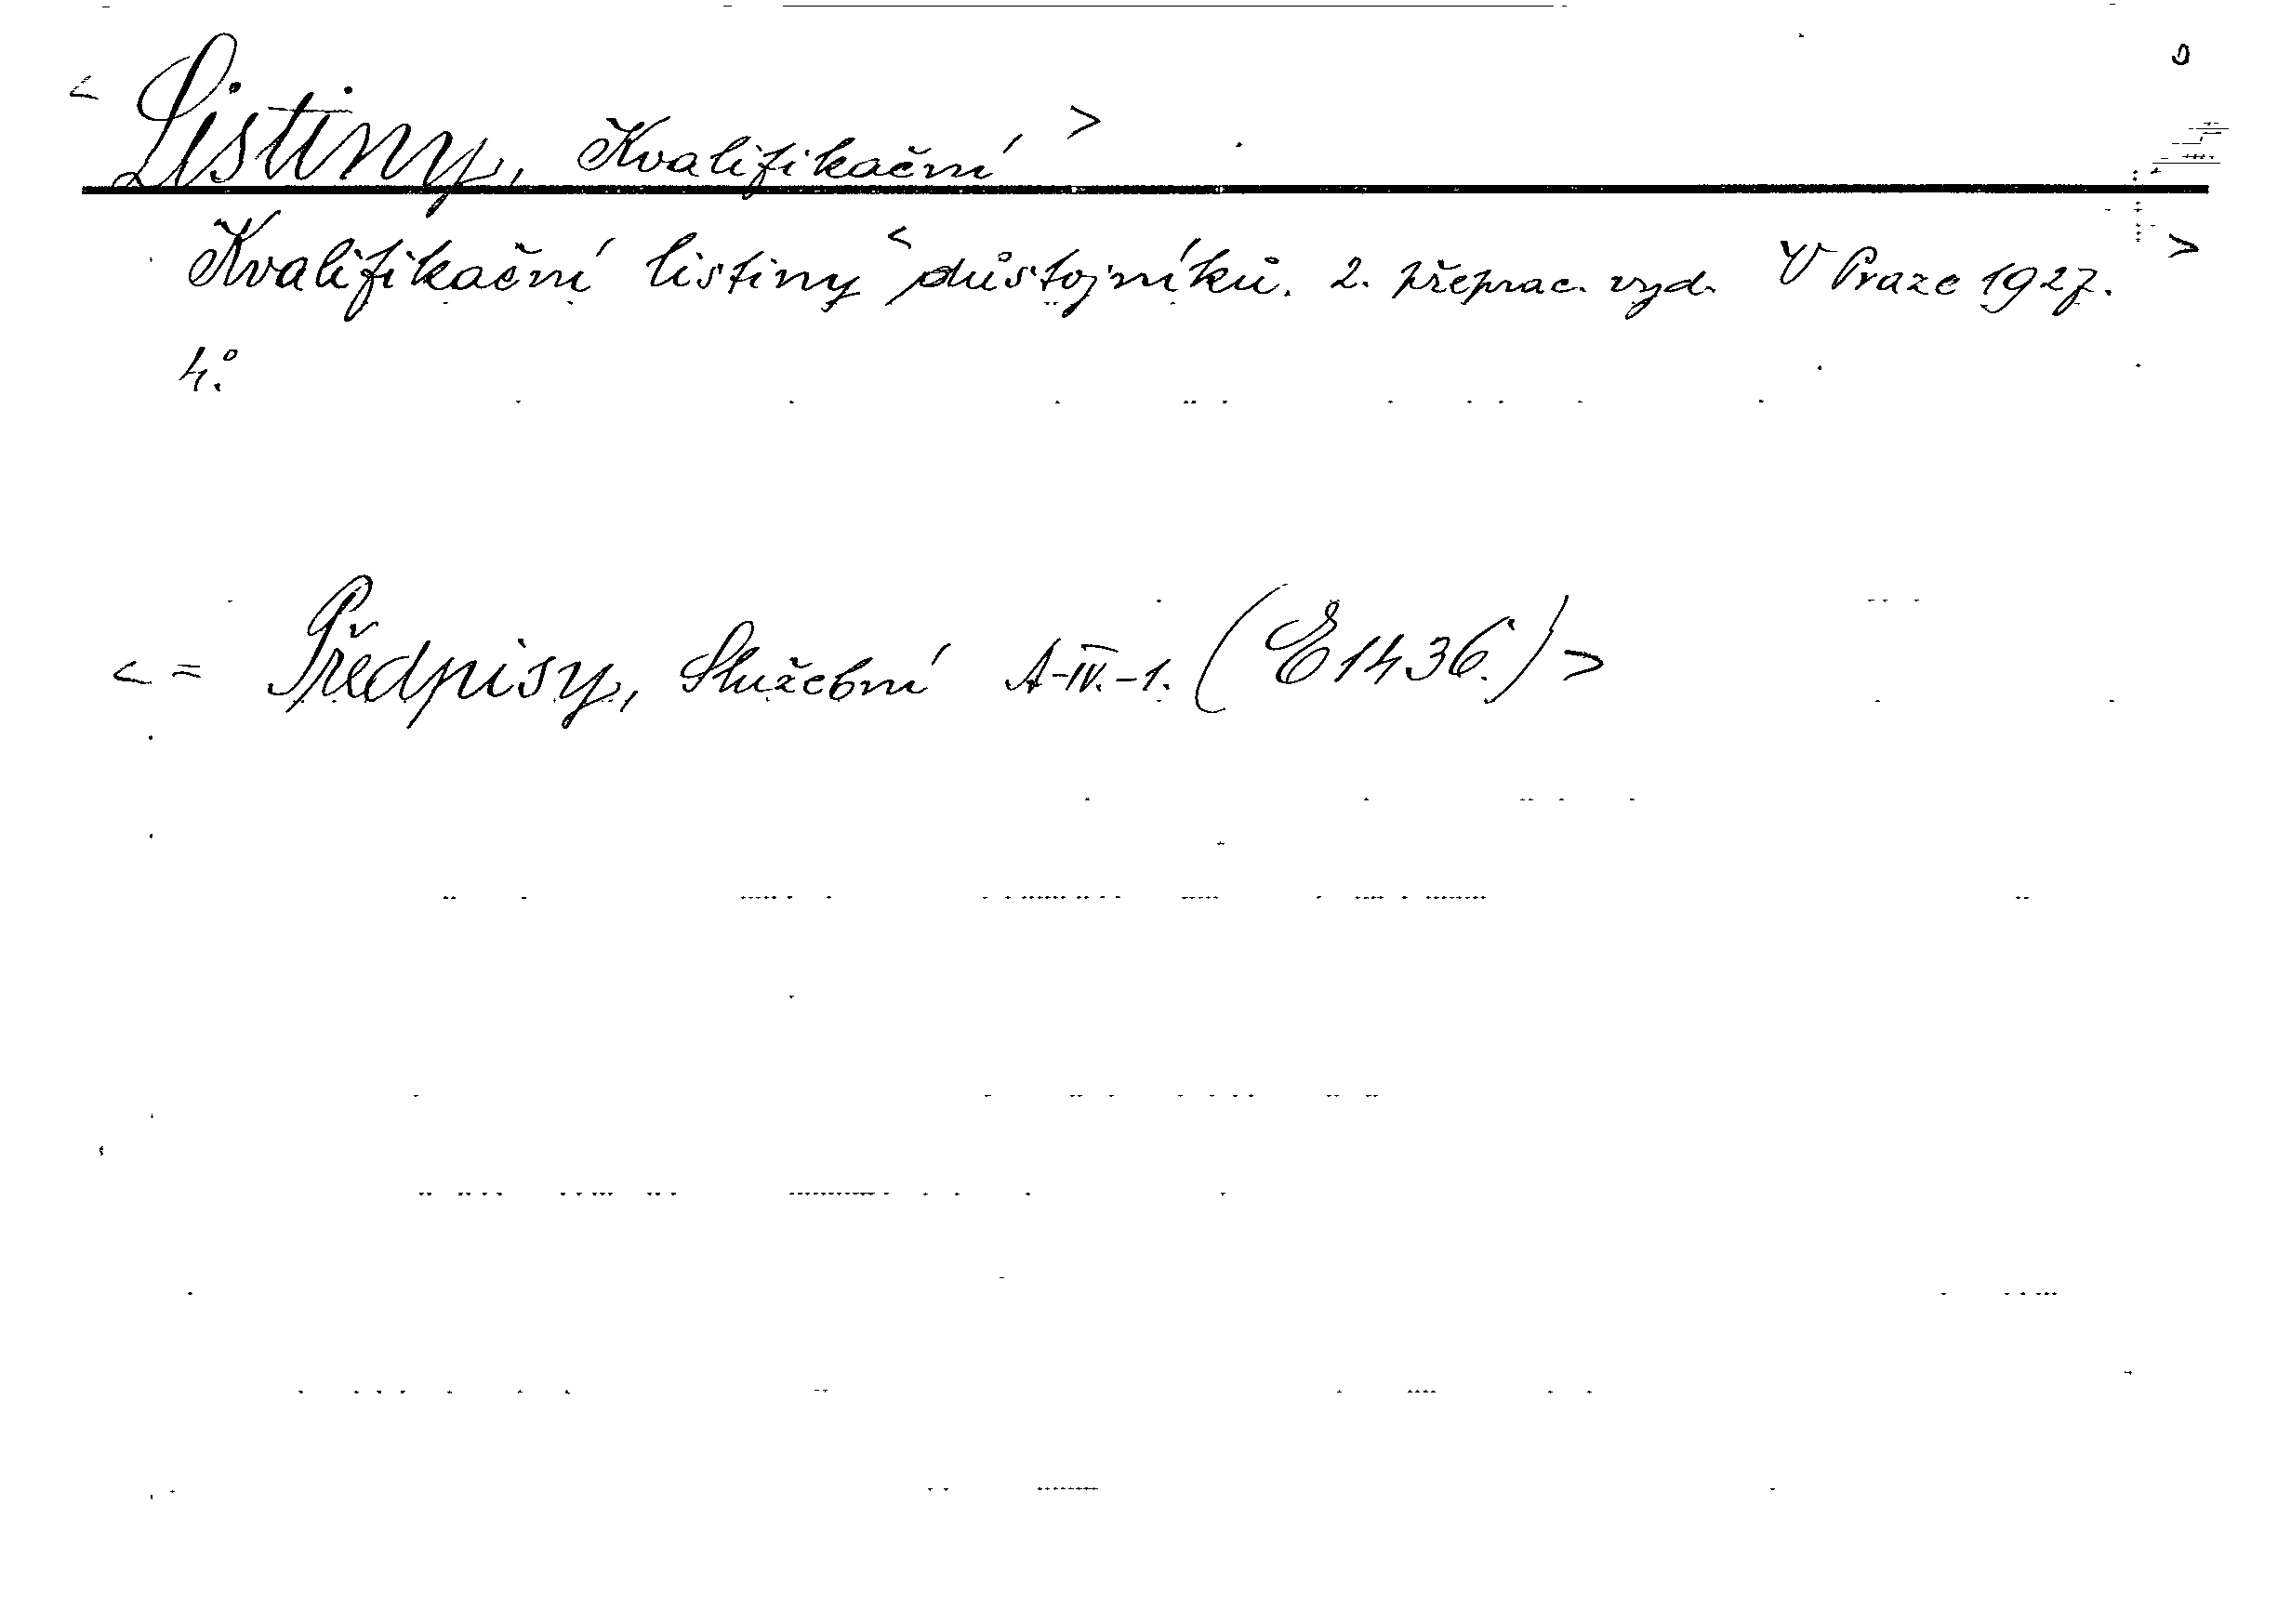 < Listiny, Kvalifikační >
Kvalifikační listiny < důstojníků. 2. přeprac. vyd. V Praze 1927. >
4°.
< = Předpisy, Služební A-IV.-1. (E 1436.) >